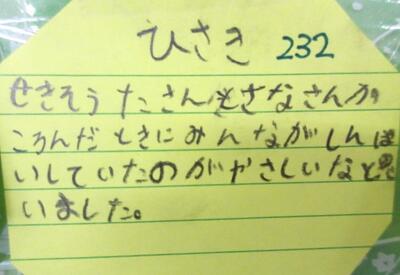 ひさき 232
せきそうたさんときなさんが
ころんだときにみんながしんぱ
いしていたのがやさしいなと思
いました。